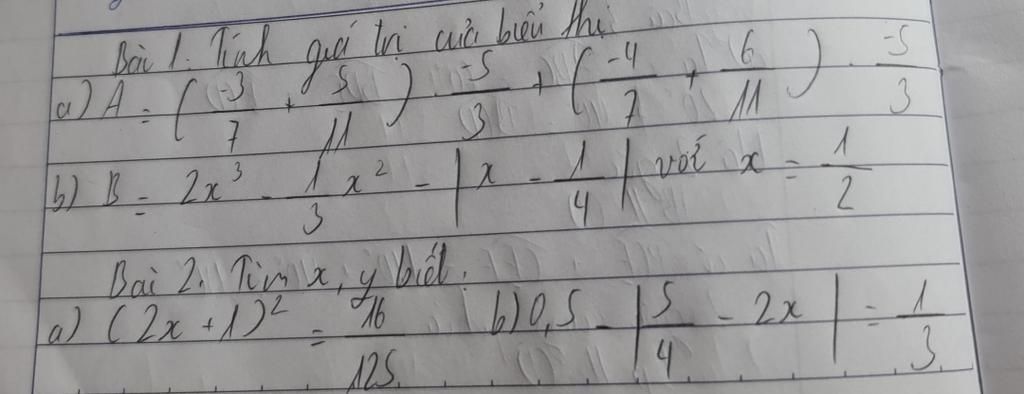 Bài 1. Tính giá trị của biểu thị
a) A = (-3/7 + 5/11) . -5/3 + (-4/7 + 6/11) . -5/3
b) B = 2x³ - 1/3 x² - |x - 1/4| với x = 1/2
Bài 2. Tìm x, y biết:
a) (2x + 1)² = 16/125 b) 0,5 - |5/4 - 2x| = 1/3